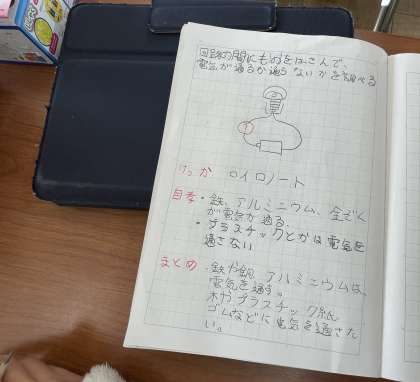 回路の間にものをはさんで、
電気が通るか通らないかを調べる
けっか ロイロノート
自考・鉄、アルミニウム、金ぞく
が電気が通る。
・プラスチックとかは電気を
通さない
まとめ ・鉄や銅、アルミニウムは、
電気を通す。
木やプラスチック、紙
ゴムなどは電気を通さな
い。